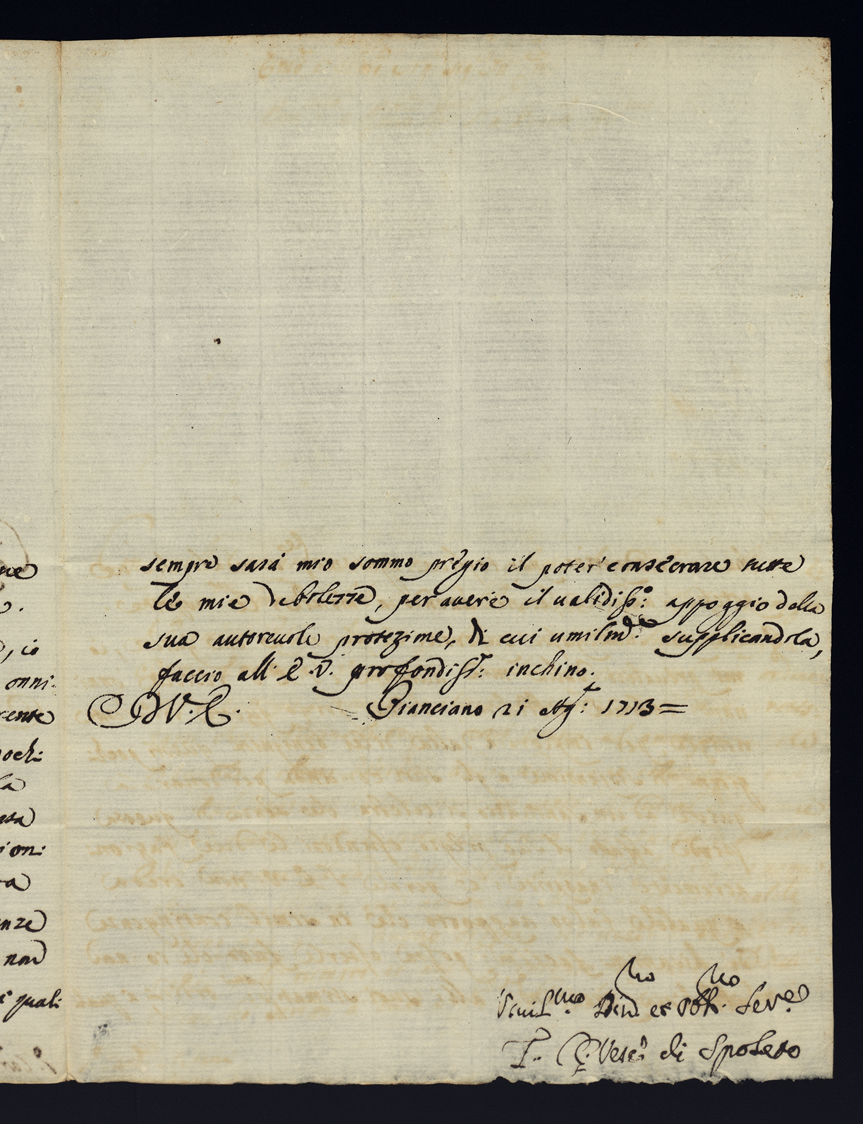 sempre sarà mio sommo pregio il poter consecrare tutte
le mie debolezze, per avere il validiss.º: appoggio della
sua autorevole protezione, di cui umilm.te supplicandola,
faccio all' E. V. profondiss.: inchino.
D V. E. Gianciano 21 Ag.: 1713=
Umil.mo Div.mo et Obb.mo Ser.e
Vesc.º di Spoleto
ne
o.
, io
onni:
rente
poch:
la
ion:
enze
non
quali